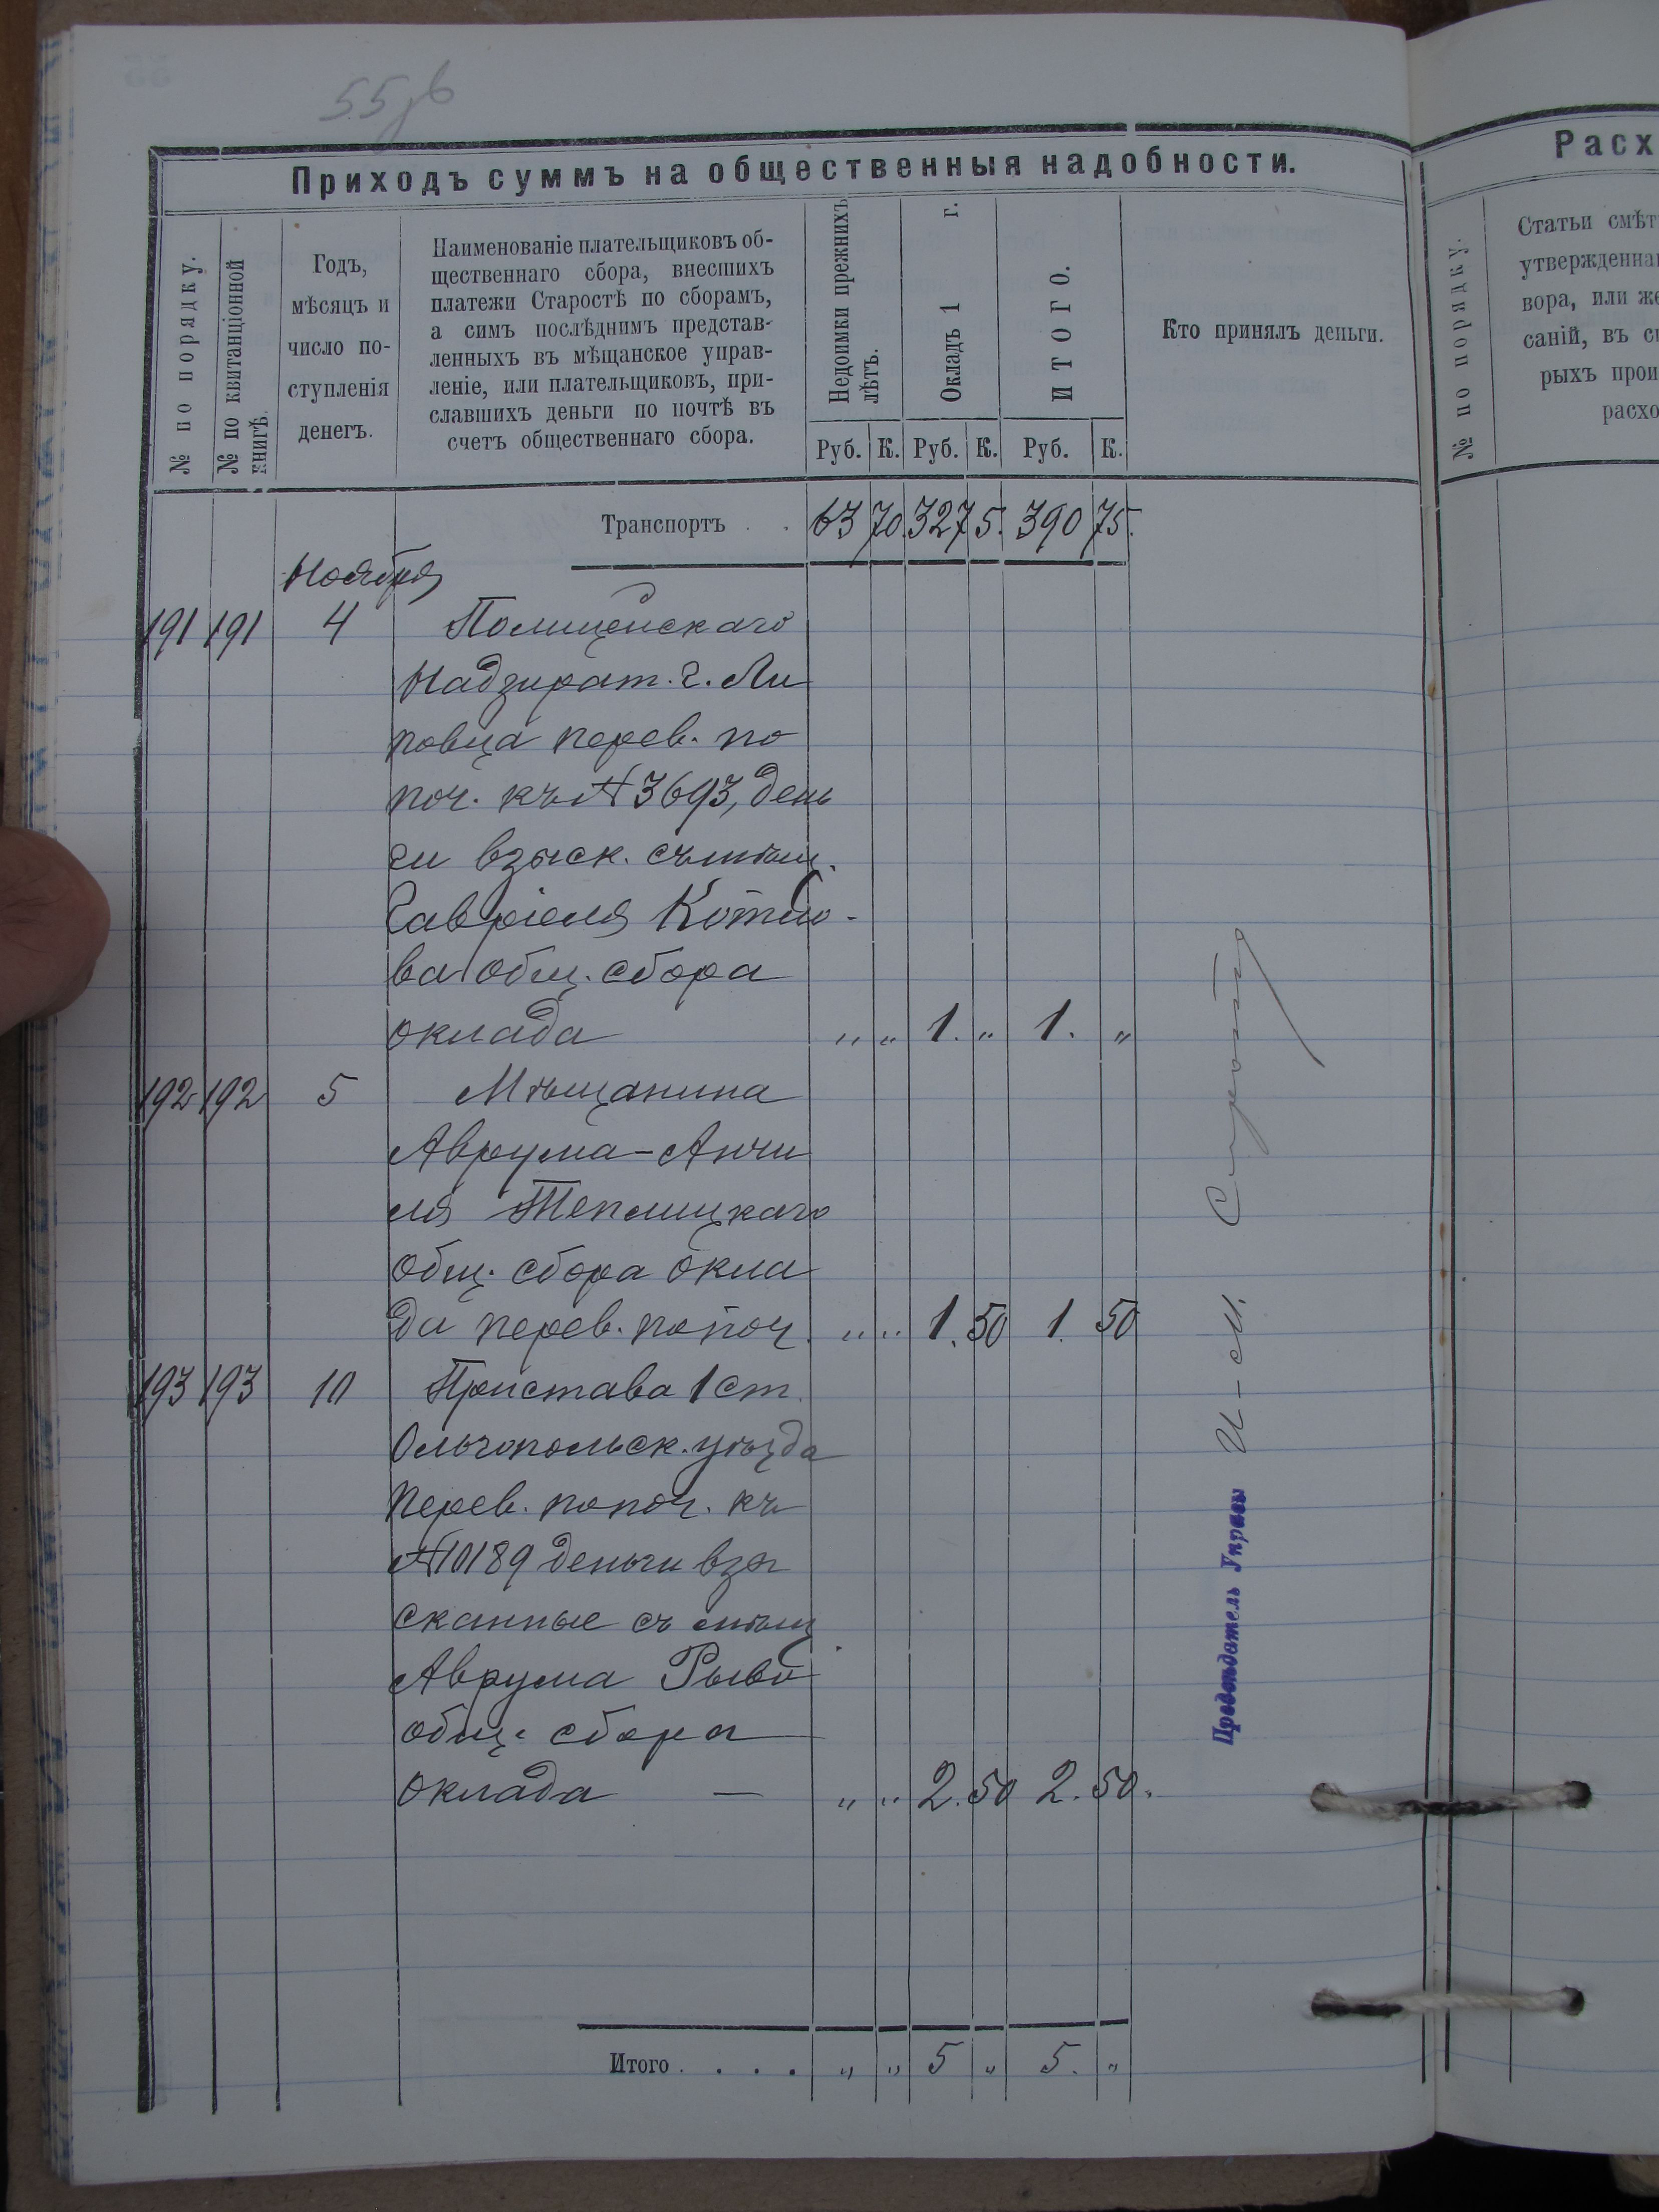 55 зв
Приходъ суммъ на общественныя надобности.
№ по порядку.
№ по квитанціонной книгѣ.
Годъ,
мѣсяцъ и
число по-
ступленія
денегъ.
Наименованіе плательщиковъ об-
щественнаго сбора, внесшихъ
платежи Старостѣ по сборамъ,
а симъ послѣднимъ представ-
ленныхъ въ мѣщанское управ-
леніе, или плательщиковъ, при-
славшихъ деньги по почтѣ въ
счетъ общественнаго сбора.
Недоимки прежнихъ лѣтъ.
Окладъ 1 г.
ИТОГО.
Кто принялъ деньги.
Руб. К. Руб. К. Руб. К.
Транспортъ . . 63 70. 327 5. 390 75.
Ноября
191 191 4 Полицейскаго
Надзират. г. Ли
повца перев. по
поч. къ № 3693, день
ги взыск. съ мѣщ.
Гавріеля
ва общ. сбора
оклада „ „ 1. „ 1. „
192 192 5 Мѣщанина
Аврума-Анчи
ля Теплицкаго
общ. сбора окла
да перев. по поч. „ „ 1. 50 1. 50
193 193 10 Пристава 1 ст.
Ольгопольск. уѣзда
перев. по поч. къ
№ 10189 деньги взы
сканные съ мѣщ.
Аврума
общ. сбора
оклада — „ „ 2. 50 2. 50.
Предсѣдатель Управы И-М.
Итого . . . . „ „ 5 „ 5. „
Расх
№ по порядку.
Статьи смѣт
утвержденна
вора, или же
саній, въ с
рыхъ прои
расхо